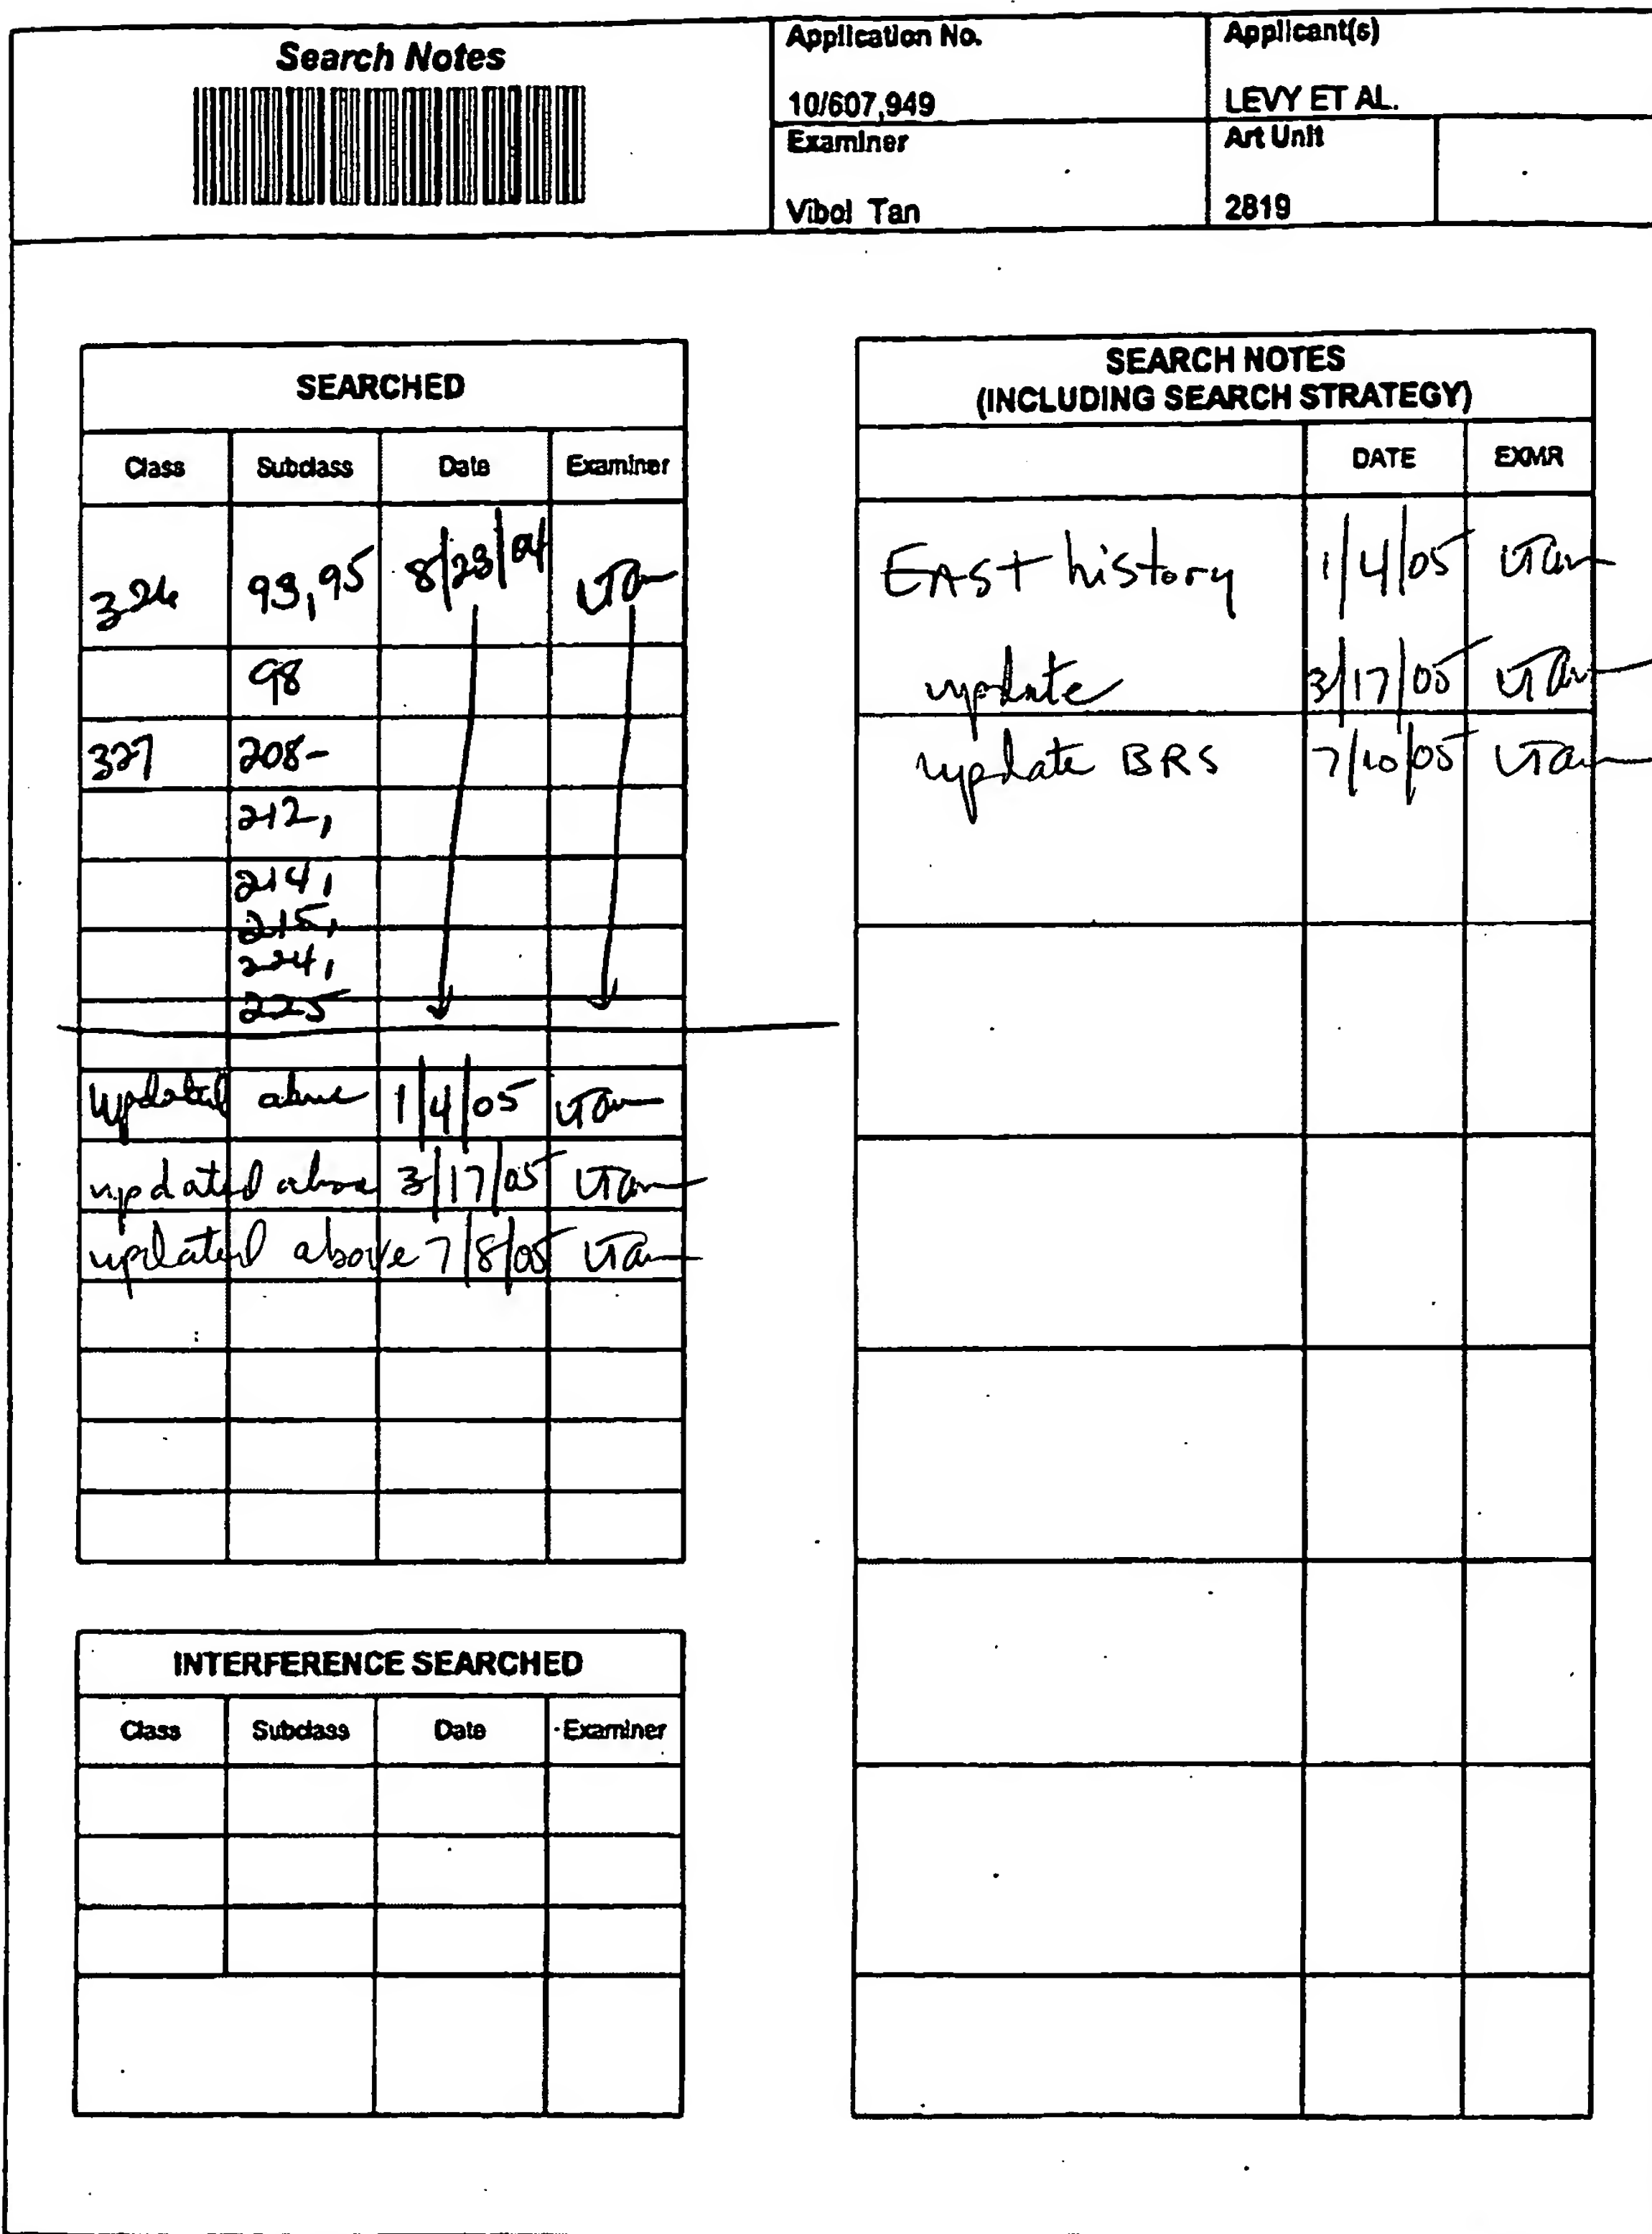 Search Notes
Application No.
10/607,949
Applicant(s)
LEVY ET AL.
Examiner
Vibol Tan
Art Unit
2819
SEARCHED
Class Subclass Date Examiner
326 93,95 8/23/04 VTan
98
327 208-
212,
214,
215,
224,
225
updated above 1/4/05 VTan
updated above 3/17/05 VTan
updated above 7/8/05 VTan
INTERFERENCE SEARCHED
Class Subclass Date Examiner
SEARCH NOTES
(INCLUDING SEARCH STRATEGY)
DATE EXMR
EAST history 1/4/05 VTan
update 3/17/05 VTan
update BRS 7/10/05 VTan